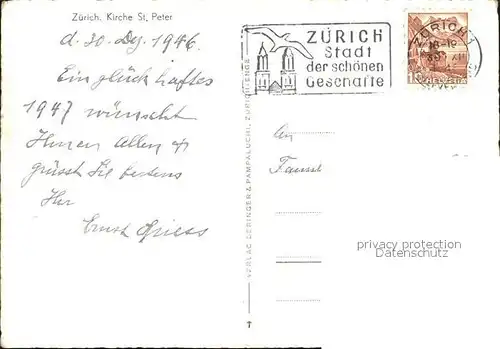 Zürich. Kirche St. Peter
d. 30. Dez. 1946.
Ein glückhaftes
1947 wünscht
Ihnen allen &
grüsst Sie bestens
Ihr
Ernst
ZÜRICH
Stadt
der schönen
Geschäfte
ZÜRICH 1
18-19
HELVETIA
VERLAG BERINGER & PAMPALUCHI, ZÜRICH-ENGE
An
privacy protection
Datenschutz